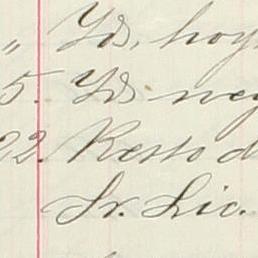 " Yd, hoy
5. Yd neg
22. Resto d
Sr. Lic.